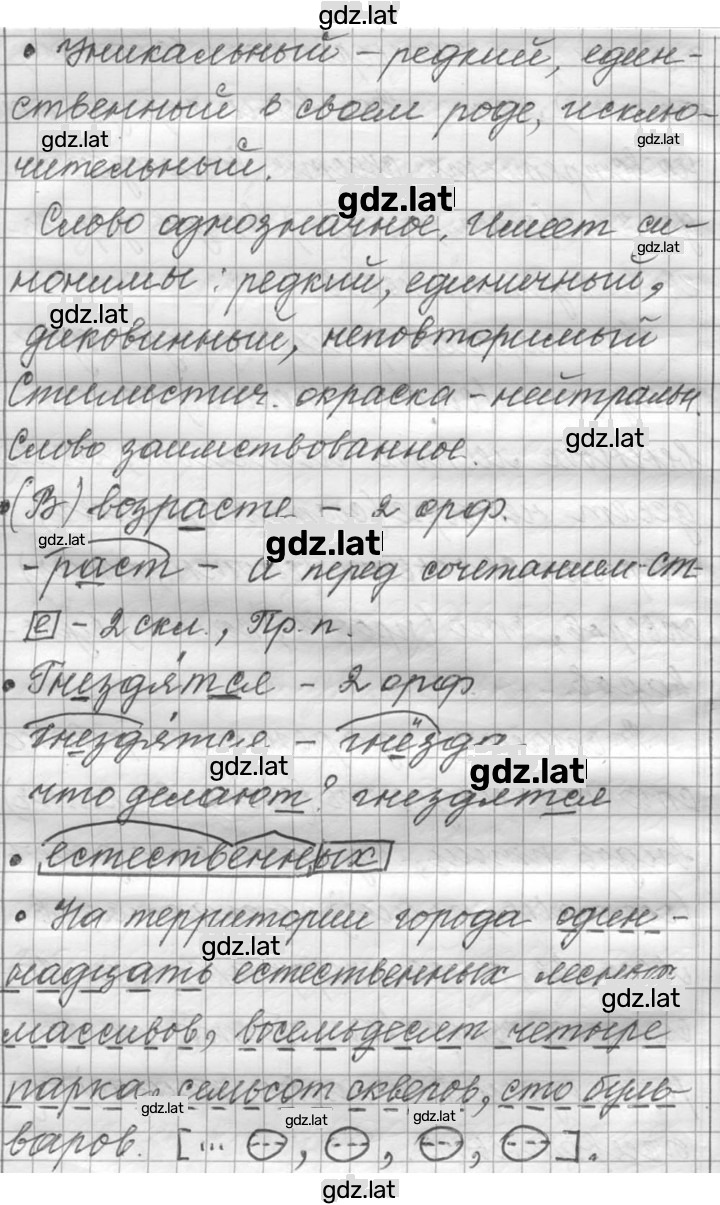 gdz.lat
• Уникальный – редкий, един-
ственный в своем роде, исклю-
gdz.lat
gdz.lat
чительный.
gdz.lat
Слово однозначное. Имеет си-
gdz.lat
нонимы: редкий, единичный,
gdz.lat
диковинный, неповторимый
Стилистич. окраска – нейтральн.
gdz.lat
Слово заимствованное.
• (В) возрасте – 2 орф.
gdz.lat
gdz.lat
-раст – а перед сочетанием -ст-
е – 2 скл., Пр. п.
• Гнездя́тся – 2 орф
гнездя́тся – гнёзда
gdz.lat
gdz.lat
что делают? гнездятся
• естественных
• На территории города один-
gdz.lat
надцать естественных лесных
gdz.lat
массивов, восемьдесят четыре
парка, семьсот скверов, сто буль-
gdz.lat
gdz.lat
gdz.lat
варов. [... , , , ].
gdz.lat